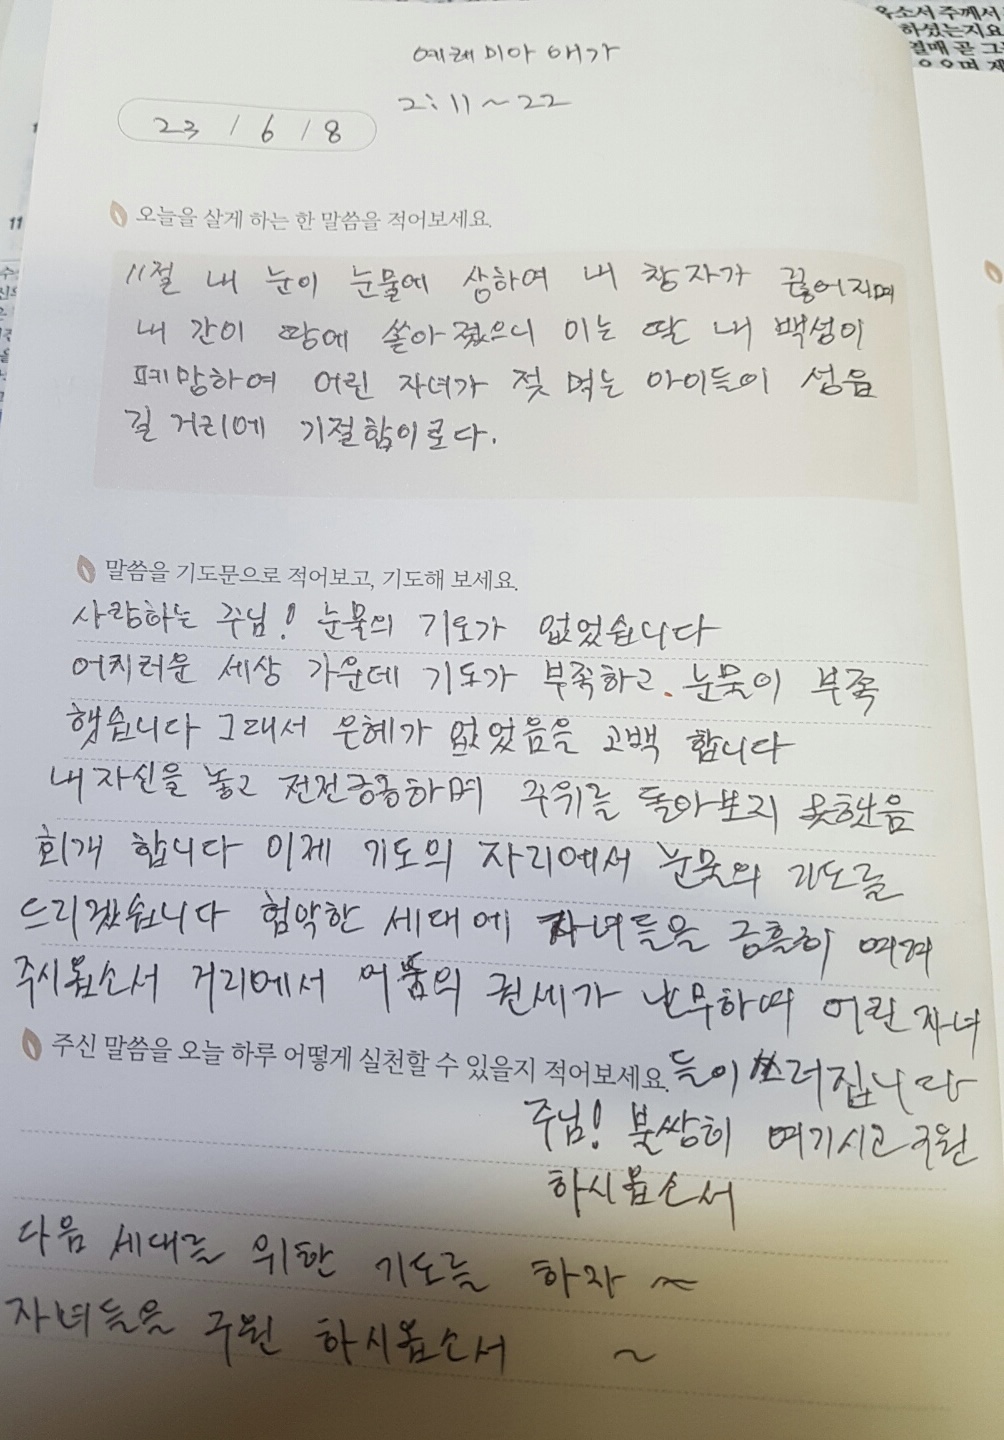 예레미아 애가
2:11~22
23 / 6 / 8
오늘을 살게 하는 한 말씀을 적어보세요.
11절 내 눈이 눈물에 상하여 내 창자가 끊어지며
내 간이 땅에 쏟아졌으니 이는 딸 내 백성이
패망하여 어린 자녀가 젖 먹는 아이들이 성읍
길 거리에 기절함이로다.
말씀을 기도문으로 적어보고, 기도해 보세요.
사랑하는 주님! 눈물의 기도가 없었습니다
어지러운 세상 가운데 기도가 부족하고. 눈물이 부족
했습니다 그래서 은혜가 없었음을 고백 합니다
내 자신을 놓고 전전긍긍하며 주위를 돌아보지 못했음
회개 합니다 이제 기도의 자리에서 눈물의 기도를
드리겠습니다 험악한 세대에 자녀들을 긍휼히 여겨
주시옵소서 거리에서 어둠의 권세가 난무하며 어린 자녀
들이 쓰러집니다
주님! 불쌍히 여기시고 구원
하시옵소서
주신 말씀을 오늘 하루 어떻게 실천할 수 있을지 적어보세요.
다음 세대를 위한 기도를 하자 ~
자녀들을 구원 하시옵소서 ~
옥소서 주께서
하셨는지요
결매 곧 그
11